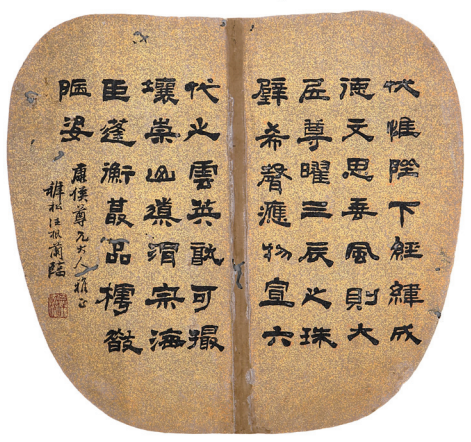 伏惟陛下經緯成
德文思垂風則大
居尊曜三辰之珠
璧希聲應物宣六
代之雲英孰可撮
壤崇山導涓宗海
臣蓬衡蕞品樗散
陋姿
康侯尊兄大人雅正
稚松汪根蘭臨